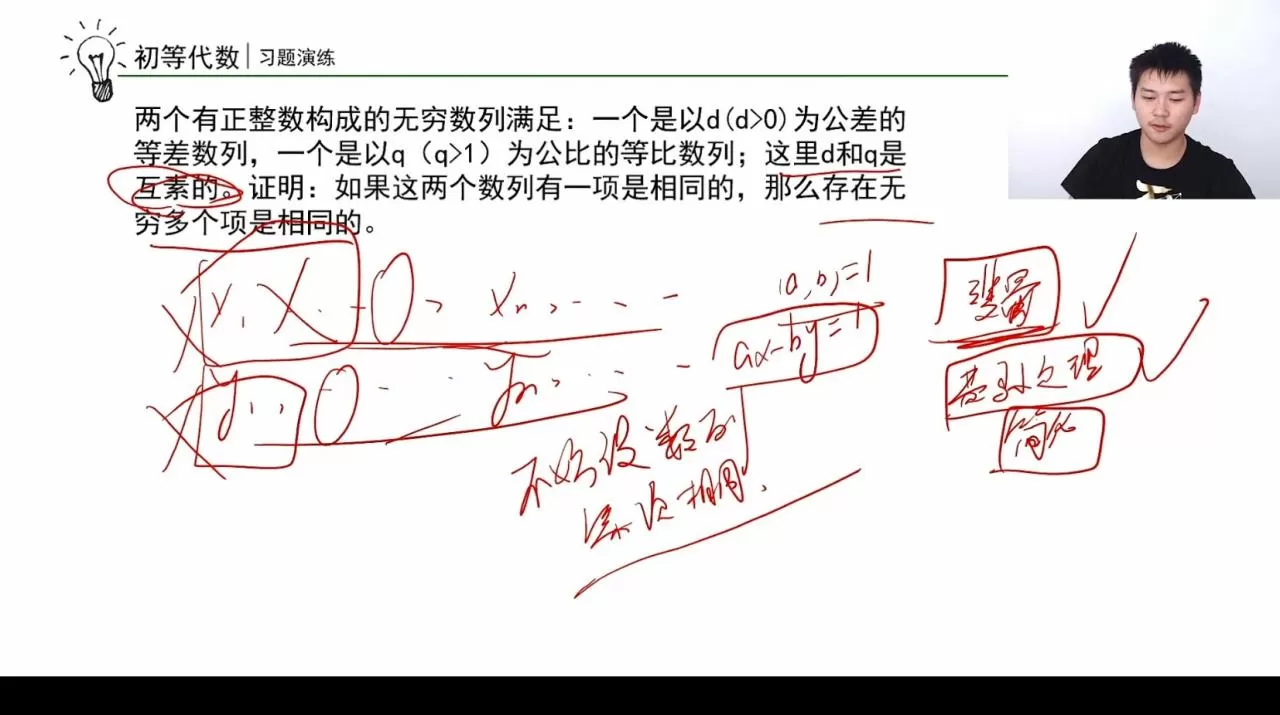 初等代数 习题演练
两个有正整数构成的无穷数列满足：一个是以d(d>0)为公差的
等差数列，一个是以q（q>1）为公比的等比数列；这里d和q是
互素的。证明：如果这两个数列有一项是相同的，那么存在无
穷多个项是相同的。
(a,b)=1
ax-by=1
裴蜀定理
简化
不妨设数列
某项相同.